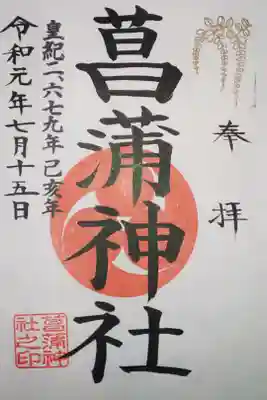 奉拝
菖蒲神社
皇紀二、六七九年己亥年
令和元年七月十五日
菖蒲神
社之印